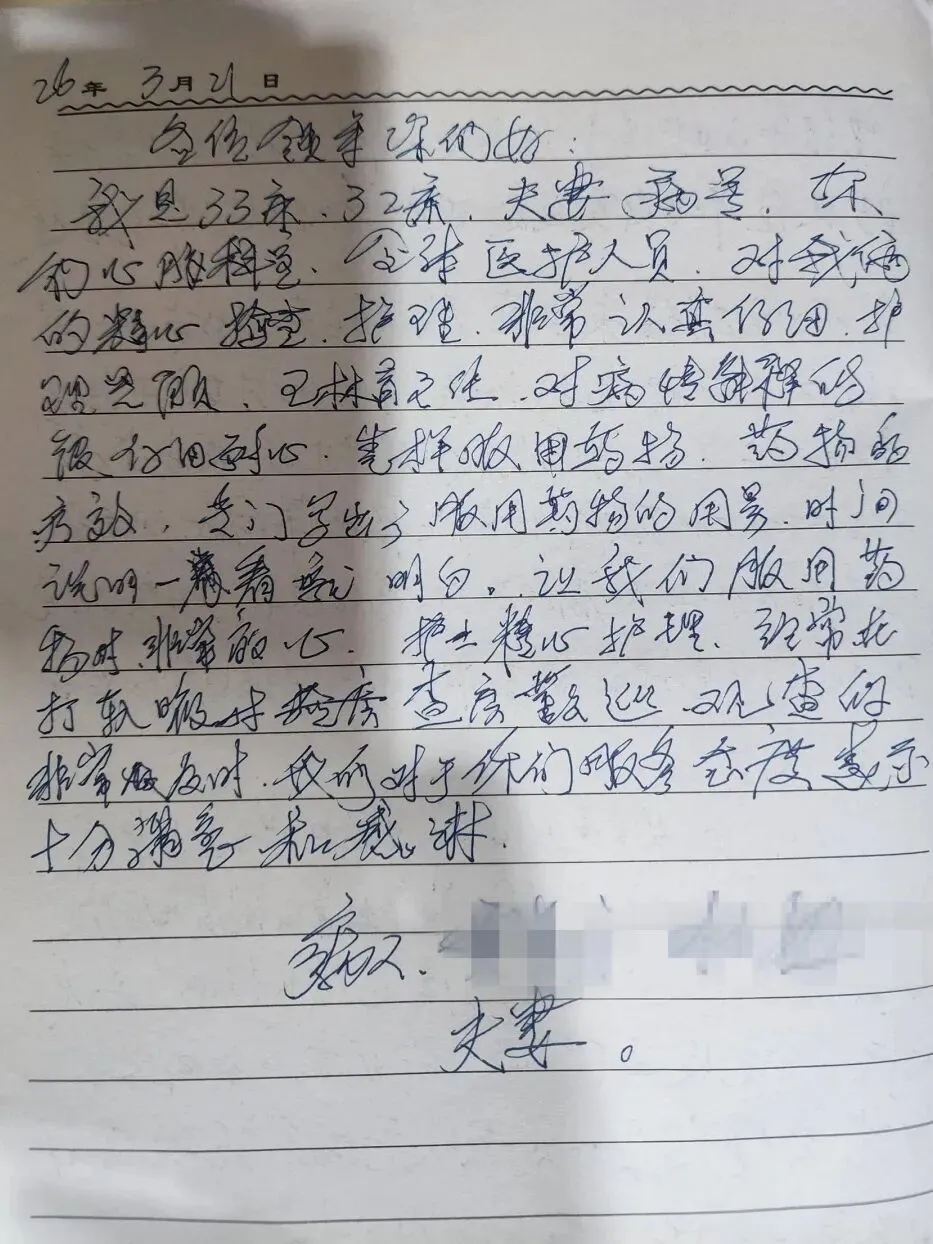 26年 3月21日
各位领导你们好:
我是33床、32床、夫妻病号、在
的心脏科室、全体医护人员、对我俩
的精心检查、护理、非常认真仔细、护
理周、王林育主任、对病情解释的
很仔细耐心、怎样服用药物、药物的
疗效、专门写出了服用药物的用量、时间
说明一看就明白。让我们服用药
物时非常放心、护士精心护理、经常在
打针 查房 观查的
非常及时、我们对于你们服务态度表示
十分满意和感谢.
病人.
夫妻。